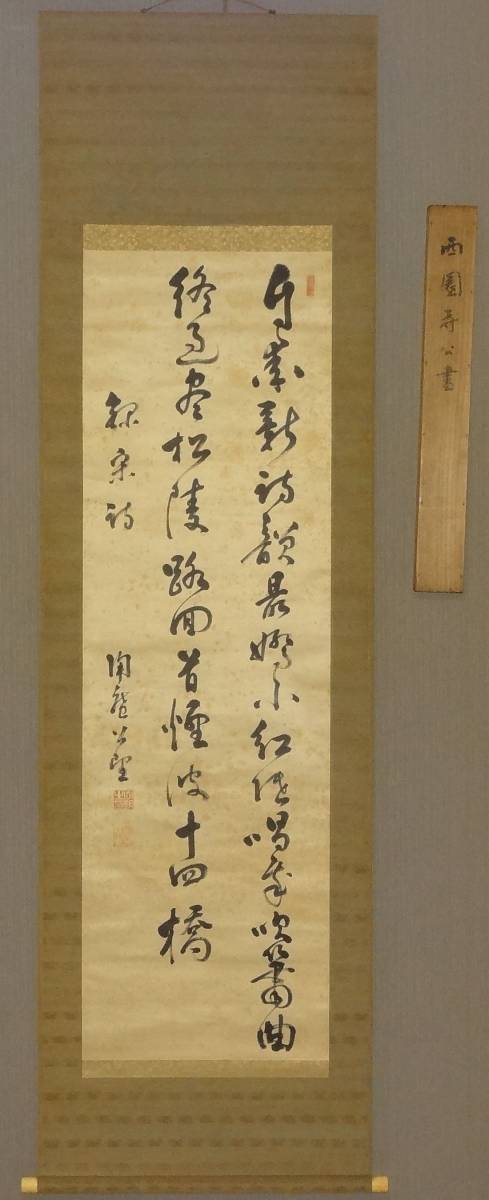 自新詩韻最嬌小紅低唱我吹簫曲
終過盡松陵路回首煙波十四橋
録宋詩
陶庵公望
西園寺公書